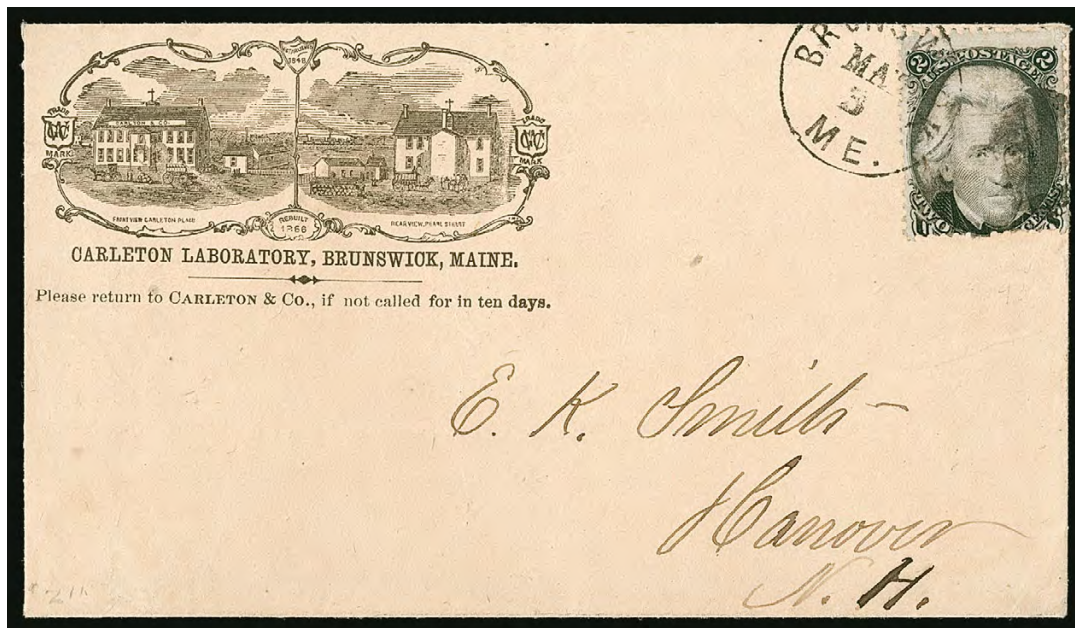 ESTABLISHED
1848
TRADE
CC
MARK
CARLETON & CO.
TRADE
CC
MARK
FRONT VIEW CARLETON PLACE
REAR VIEW, PEARL STREET
REBUILT
1866
CARLETON LABORATORY, BRUNSWICK, MAINE.
Please return to CARLETON & CO., if not called for in ten days.
BRUNSW
MA
5
ME.
2 U.S. POSTAGE 2
U
E. K. Smith
Hanover
N. H.